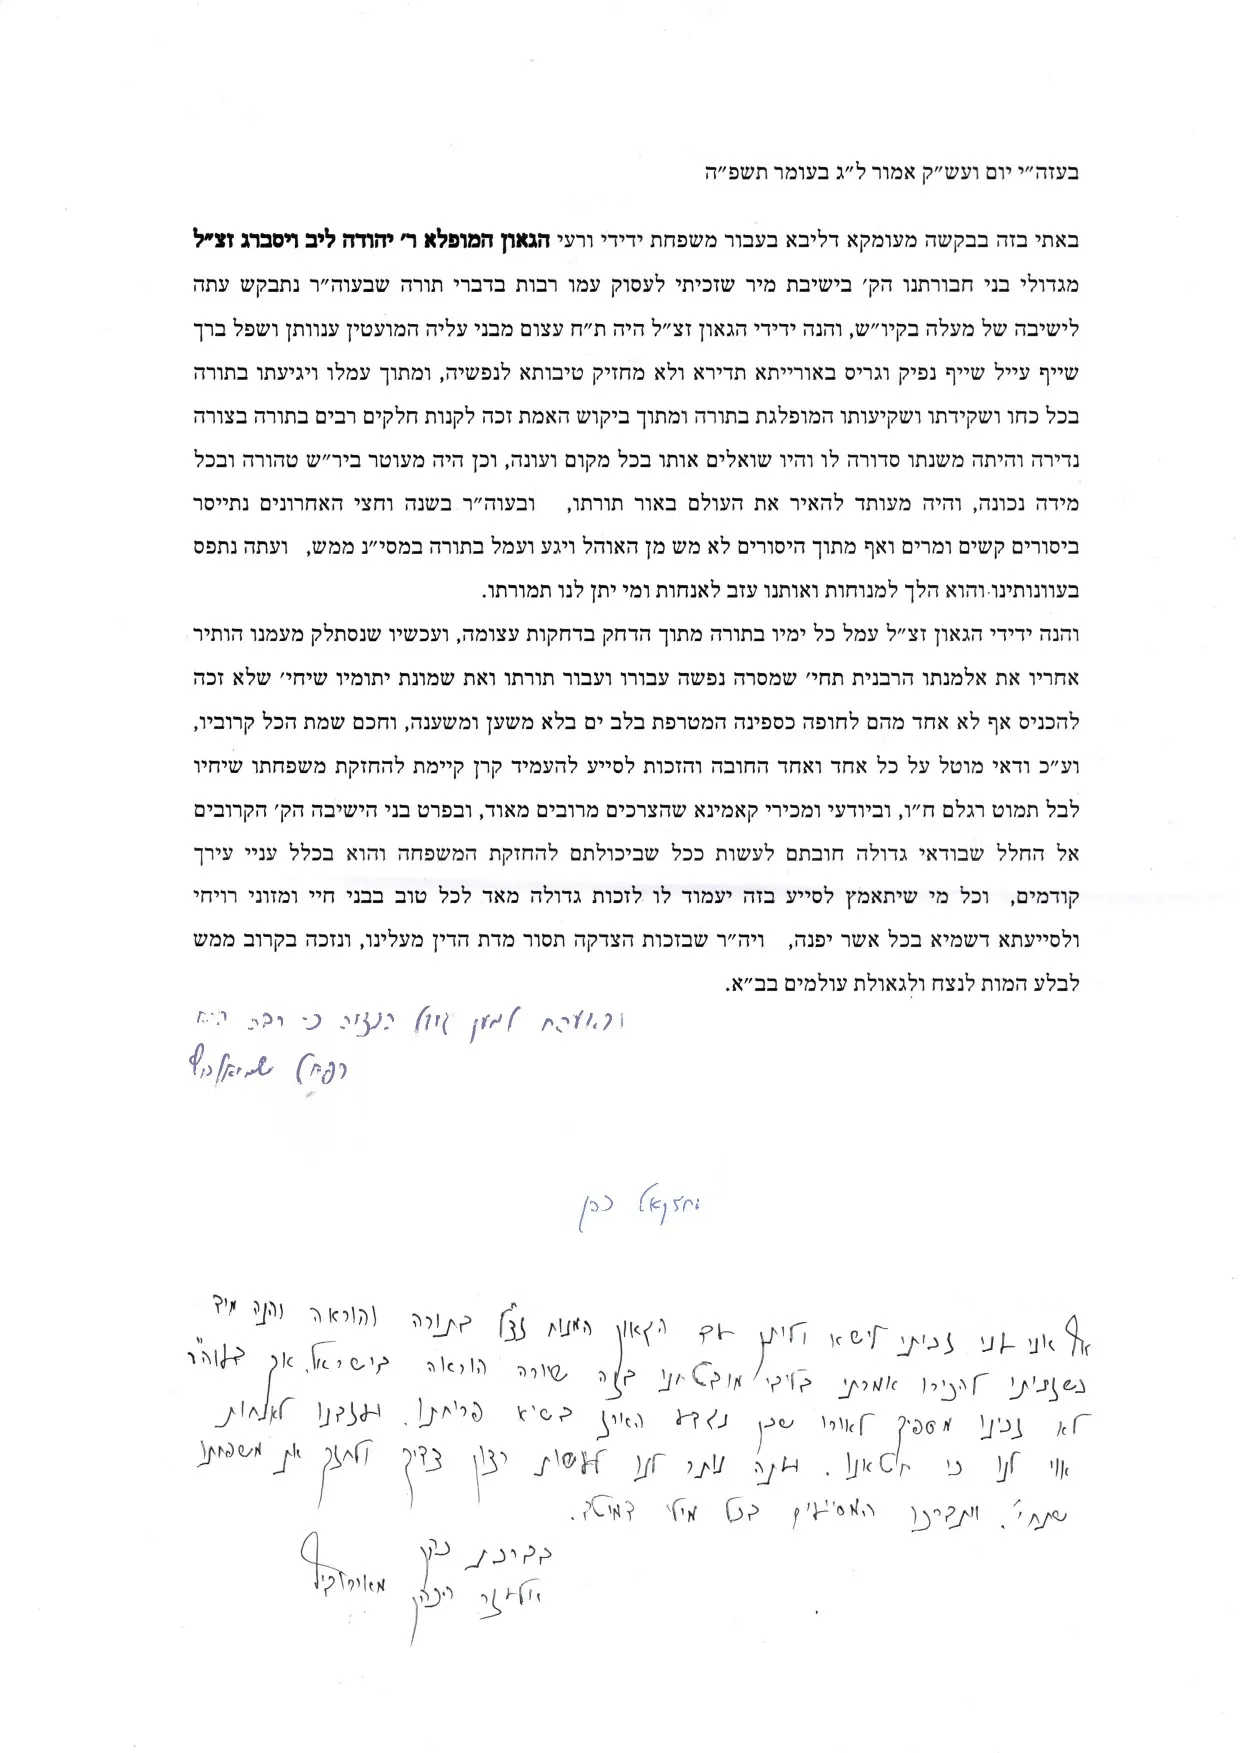 בעזה״י יום ועש״ק אמור ל״ג בעומר תשפ״ה
באתי בזה בבקשה מעומקא דליבא בעבור משפחת ידידי ורעי הגאון המופלא ר׳ יהודה ליב ויסברג זצ״ל
מגדולי בני חבורתנו הק׳ בישיבת מיר שזכיתי לעסוק עמו רבות בדברי תורה שבעוה״ר נתבקש עתה
לישיבה של מעלה בקיו״ש, והנה ידידי הגאון זצ״ל היה ת״ח עצום מבני עליה המועטין ענוותן ושפל ברך
שייף עייל שייף נפיק וגריס באורייתא תדירא ולא מחזיק טיבותא לנפשיה, ומתוך עמלו ויגיעתו בתורה
בכל כחו ושקידתו ושקיעותו המופלגת בתורה ומתוך ביקוש האמת זכה לקנות חלקים רבים בתורה בצורה
נדירה והיתה משנתו סדורה לו והיו שואלים אותו בכל מקום ועונה, וכן היה מעוטר ביר״ש טהורה ובכל
מידה נכונה, והיה מעותד להאיר את העולם באור תורתו, ובעוה״ר בשנה וחצי האחרונים נתייסר
ביסורים קשים ומרים ואף מתוך היסורים לא מש מן האוהל ויגע ועמל בתורה במסי״נ ממש, ועתה נתפס
בעוונותינו והוא הלך למנוחות ואותנו עזב לאנחות ומי יתן לנו תמורתו.
והנה ידידי הגאון זצ״ל עמל כל ימיו בתורה מתוך הדחק בדחקות עצומה, ועכשיו שנסתלק מעמנו הותיר
אחריו את אלמנתו הרבנית תחי׳ שמסרה נפשה עבורו ועבור תורתו ואת שמונת יתומיו שיחי׳ שלא זכה
להכניס אף לא אחד מהם לחופה כספינה המטרפת בלב ים בלא משען ומשענה, וחכם שמת הכל קרוביו,
וע״כ ודאי מוטל על כל אחד ואחד החובה והזכות לסייע להעמיד קרן קיימת להחזקת משפחתו שיחיו
לבל תמוט רגלם ח״ו, וביודעי ומכירי קאמינא שהצרכים מרובים מאוד, ובפרט בני הישיבה הק׳ הקרובים
אל החלל שבודאי גדולה חובתם לעשות ככל שביכולתם להחזקת המשפחה והוא בכלל עניי עירך
קודמים, וכל מי שיתאמץ לסייע בזה יעמוד לו לזכות גדולה מאד לכל טוב בבני חיי ומזוני רויחי
ולסייעתא דשמיא בכל אשר יפנה, ויה״ר שבזכות הצדקה תסור מדת הדין מעלינו, ונזכה בקרוב ממש
לבלע המות לנצח ולגאולת עולמים בב״א.
למען גודל כי רבה היא
רפאל שמואלביץ
יחזקאל כהן
אף אני עני זכיתי לישא וליתן עם הגאון המנוח זצ״ל בתורה והוראה והנה מיד
כשזכיתי להכירו אמרתי בליבי מובטחני בזה שיורה הוראה בישראל. אך בעוה״ר
לא זכינו מספיק לאורו שכן נגדע הארז בשיא פריחתו. ועזבנו לאנחות
אוי לנו כי חטאנו. ועתה נותר לנו לעשות רצון צדיק ולחזק את משפחתו
שתחי׳. ויתברכו המסייעים בכל מילי דמיטב.
בברכת כהן
אליעזר הכהן